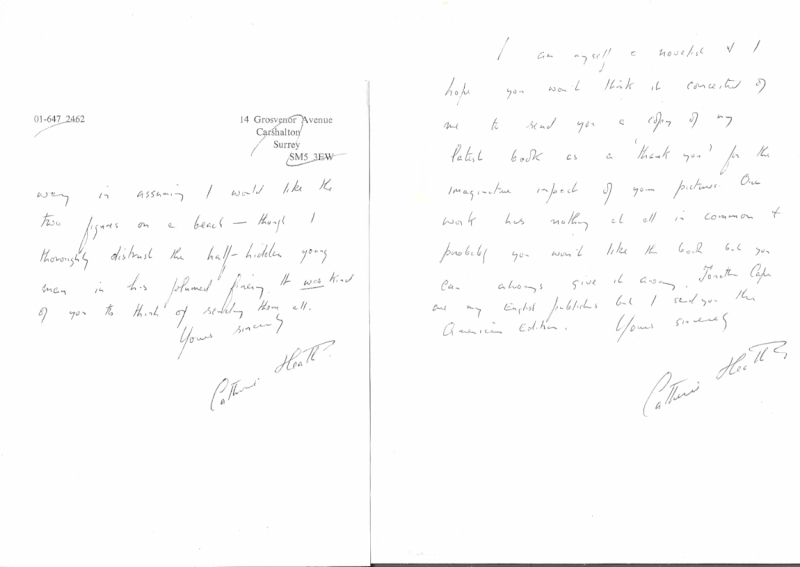 01-647 2462
14 Grosvenor Avenue
Carshalton
Surrey
SM5 3EW
wrong in assuming I would like the
two figures on a beach — though I
thoroughly distrust the half-hidden young
man in his plumed finery. It was kind
of you to think of sending them all.
Yours sincerely
Catherine Heath.
I am myself a novelist & I
hope you won't think it conceited of
me to send you a copy of my
latest book as a 'thank you' for the
imaginative impact of your pictures. Our
work has nothing at all in common &
probably you won't like the book but you
can always give it away. Jonathan Cape
are my English publishers but I send you the
American Edition. Yours sincerely
Catherine Heath